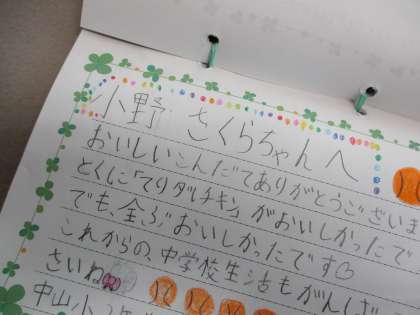 小野 さくらちゃんへ
おいしいこんだてありがとうございま
とくに「てりタルチキン」がおいしかったで
でも、全ぶおいしかったです
これからの、中学校生活もがんば
さいね
中山小